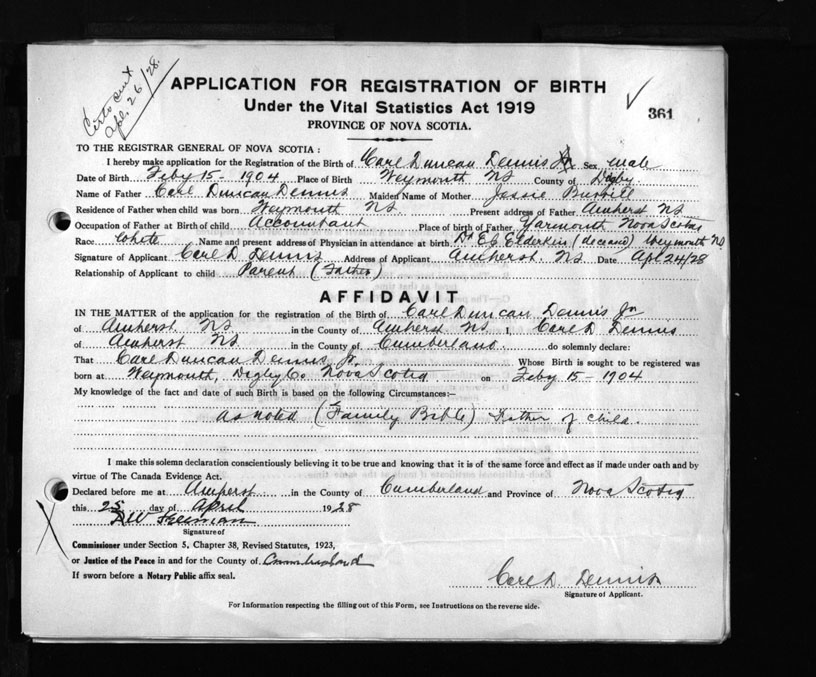 Apl. 26/28.
APPLICATION FOR REGISTRATION OF BIRTH
Under the Vital Statistics Act 1919
361
PROVINCE OF NOVA SCOTIA.
TO THE REGISTRAR GENERAL OF NOVA SCOTIA :
I hereby make application for the Registration of the Birth of Carl Duncan Dennis Jr. Sex male
Date of Birth Feby 15 - 1904 Place of Birth Weymouth NS County of Digby
Name of Father Carl Duncan Dennis Maiden Name of Mother Jessie
Residence of Father when child was born Weymouth NS Present address of Father Amherst NS
Occupation of Father at Birth of child Accountant Place of birth of Father Yarmouth Nova Scotia
Race White Name and present address of Physician in attendance at birth Dr E C Elderkin (deceased) Weymouth NS
Signature of Applicant Carl D. Dennis Address of Applicant Amherst. NS Date Apl 24/28
Relationship of Applicant to child Parent (Father)
AFFIDAVIT
IN THE MATTER of the application for the registration of the Birth of Carl Duncan Dennis Jr
of Amherst NS in the County of Amherst NS I, Carl D Dennis
of Amherst NS in the County of Cumberland do solemnly declare:
That Carl Duncan Dennis Jr. Whose Birth is sought to be registered was
born at Weymouth, Digby Co Nova Scotia on Feby 15 - 1904
My knowledge of the fact and date of such Birth is based on the following Circumstances:—
as noted (Family Bible) Father of child.
I make this solemn declaration conscientiously believing it to be true and knowing that it is of the same force and effect as if made under oath and by
virtue of The Canada Evidence Act.
Declared before me at Amherst in the County of Cumberland and Province of Nova Scotia
this 25 day of April 1928
Signature of
Commissioner under Section 5, Chapter 38, Revised Statutes, 1923,
or Justice of the Peace in and for the County of Cumberland
If sworn before a Notary Public affix seal.
Carl D. Dennis
Signature of Applicant.
For Information respecting the filling out of this Form, see Instructions on the reverse side.